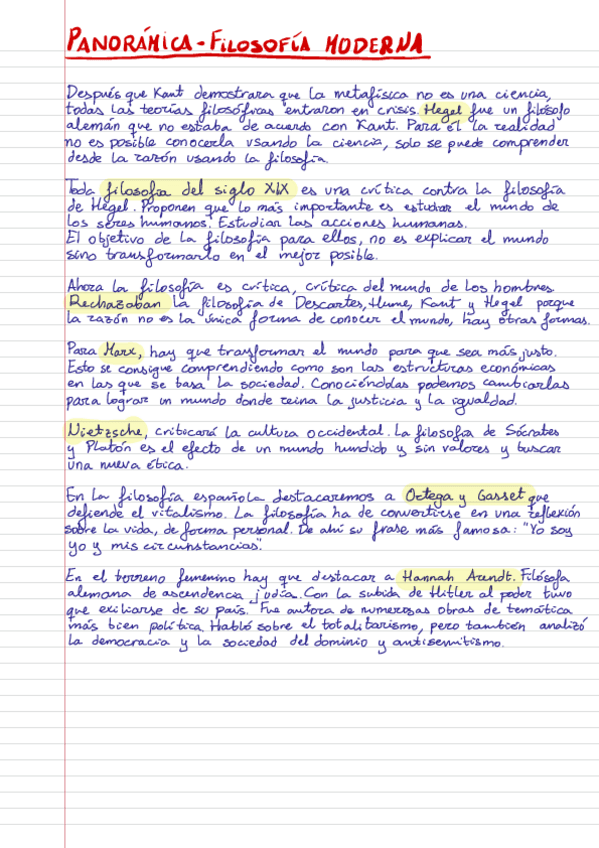 PANORÁMICA - FILOSOFÍA MODERNA
Después que Kant demostrara que la metafísica no es una ciencia,
todas las teorías filosóficas entraron en crisis. Hegel fue un filósofo
alemán que no estaba de acuerdo con Kant. Para él la realidad
no es posible conocerla usando la ciencia, solo se puede comprender
desde la razón usando la filosofía.
Toda filosofía del siglo XIX es una crítica contra la filosofía
de Hegel. Proponen que lo más importante es estudiar el mundo de
los seres humanos. Estudiar las acciones humanas.
El objetivo de la filosofía para ellos, no es explicar el mundo
sino transformarlo en el mejor posible.
Ahora la filosofía es crítica, crítica del mundo de los hombres.
Rechazaban la filosofía de Descartes, Hume, Kant y Hegel porque
la razón no es la única forma de conocer el mundo, hay otras formas.
Para Marx, hay que transformar el mundo para que sea más justo.
Esto se consigue comprendiendo como son las estructuras económicas
en las que se basa la sociedad. Conociéndolas podemos cambiarlas
para lograr un mundo donde reina la justicia y la igualdad.
Nietzsche, criticará la cultura occidental. La filosofía de Sócrates
y Platón es el efecto de un mundo hundido y sin valores y buscar
una nueva ética.
En la filosofía española destacaremos a Ortega y Gasset que
defiende el vitalismo. La filosofía ha de convertirse en una reflexión
sobre la vida, de forma personal. De ahí su frase más famosa: "Yo soy
yo y mis circunstancias".
En el terreno femenino hay que destacar a Hannah Arendt. Filósofa
alemana de ascendencia judía. Con la subida de Hitler al poder tuvo
que exiliarse de su país. Fue autora de numerosas obras de temática
más bien política. Habló sobre el totalitarismo, pero también analizó
la democracia y la sociedad del dominio y antisemitismo.